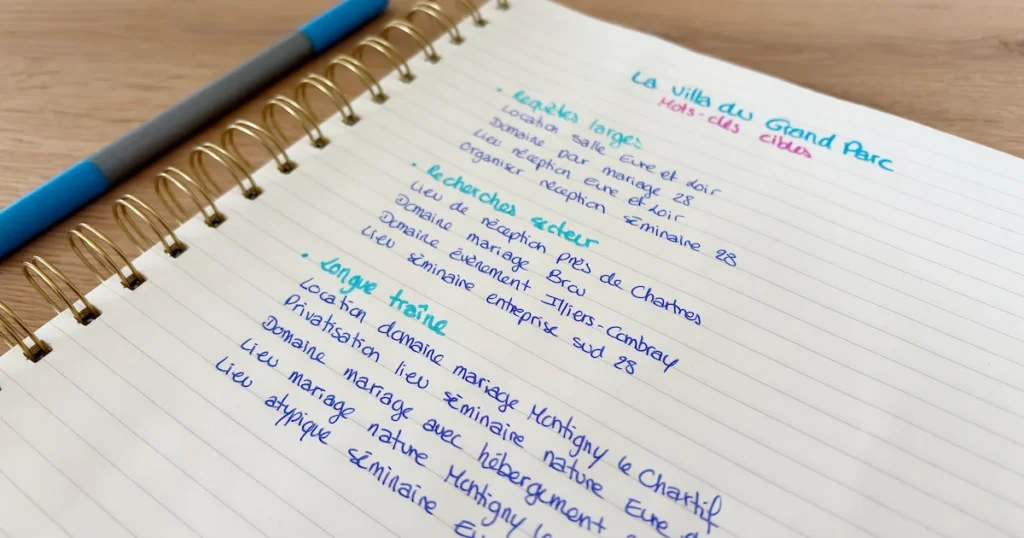 La villa du Grand Parc
Mots-clés cibles
• Requêtes larges
Location salle Eure et Loir
Domaine pour mariage 28
Lieu réception Eure et Loir
Organiser réception séminaire 28
• Recherches secteur
Lieu de réception près de Chartres
Domaine mariage Brou
Domaine évènement Illiers-Combray
Lieu séminaire entreprise sud 28
• Longue traîne
Location domaine mariage Montigny le Chartif
Privatisation lieu séminaire nature Eure
Domaine mariage avec hébergement
Lieu mariage nature Montigny le
Lieu atypique séminaire